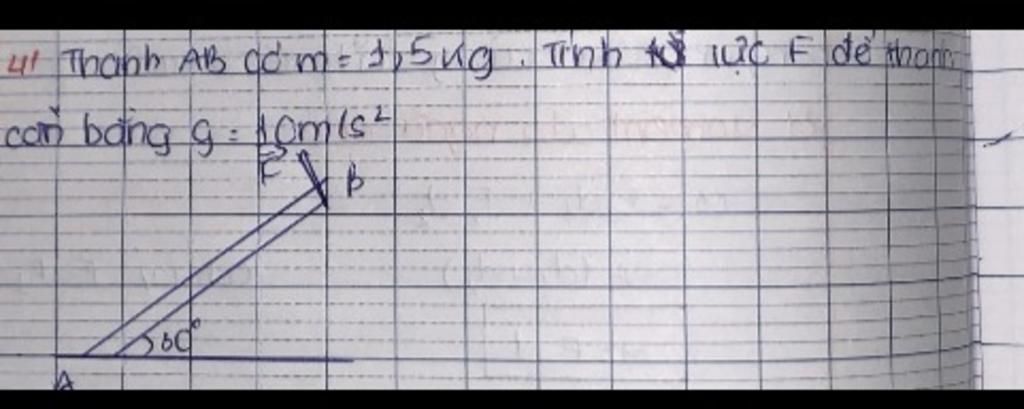 4/ Thanh AB có m = 1,5kg. Tính lực F để thanh
cân bằng g = 10m/s²
F B
60°
A